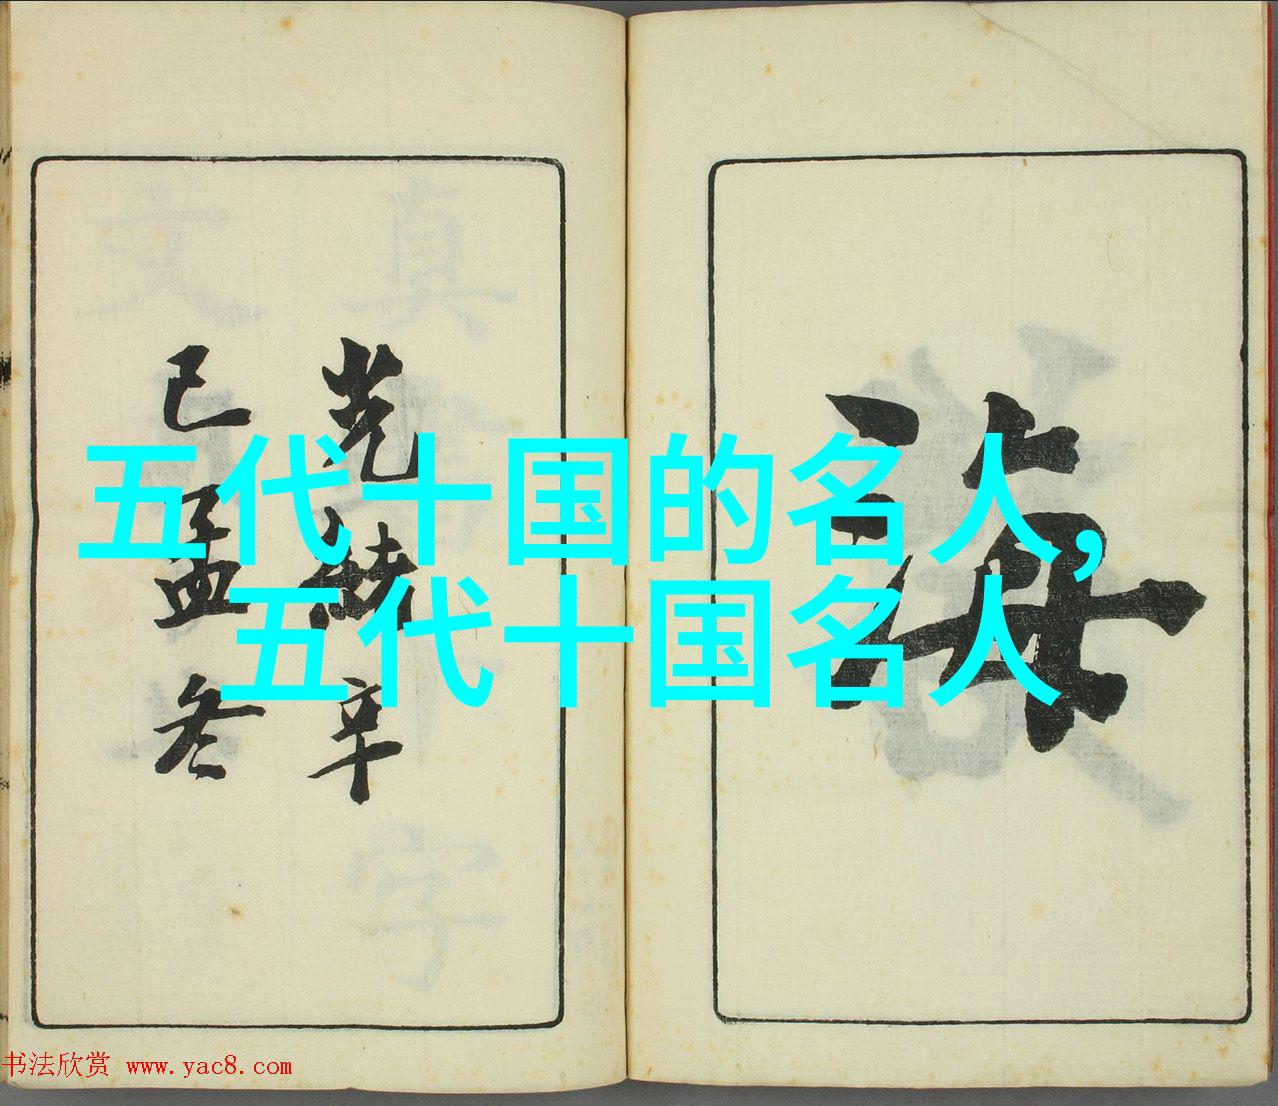 五代十国的名人,
五代十国名人
海
光绪辛
已孟冬
书法欣赏 www.yac8.com